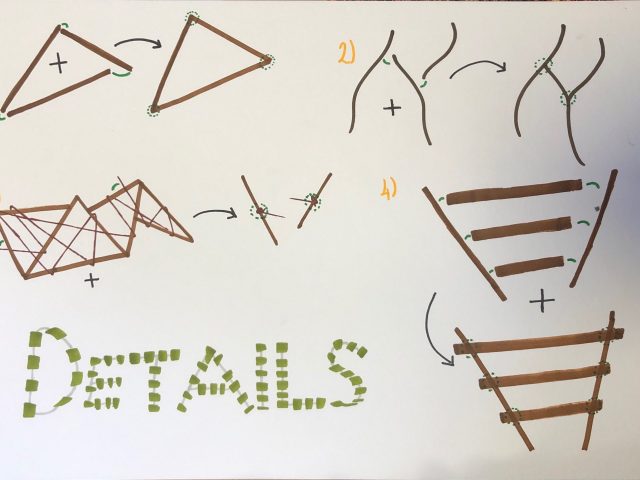 2)
4)
DETAILS